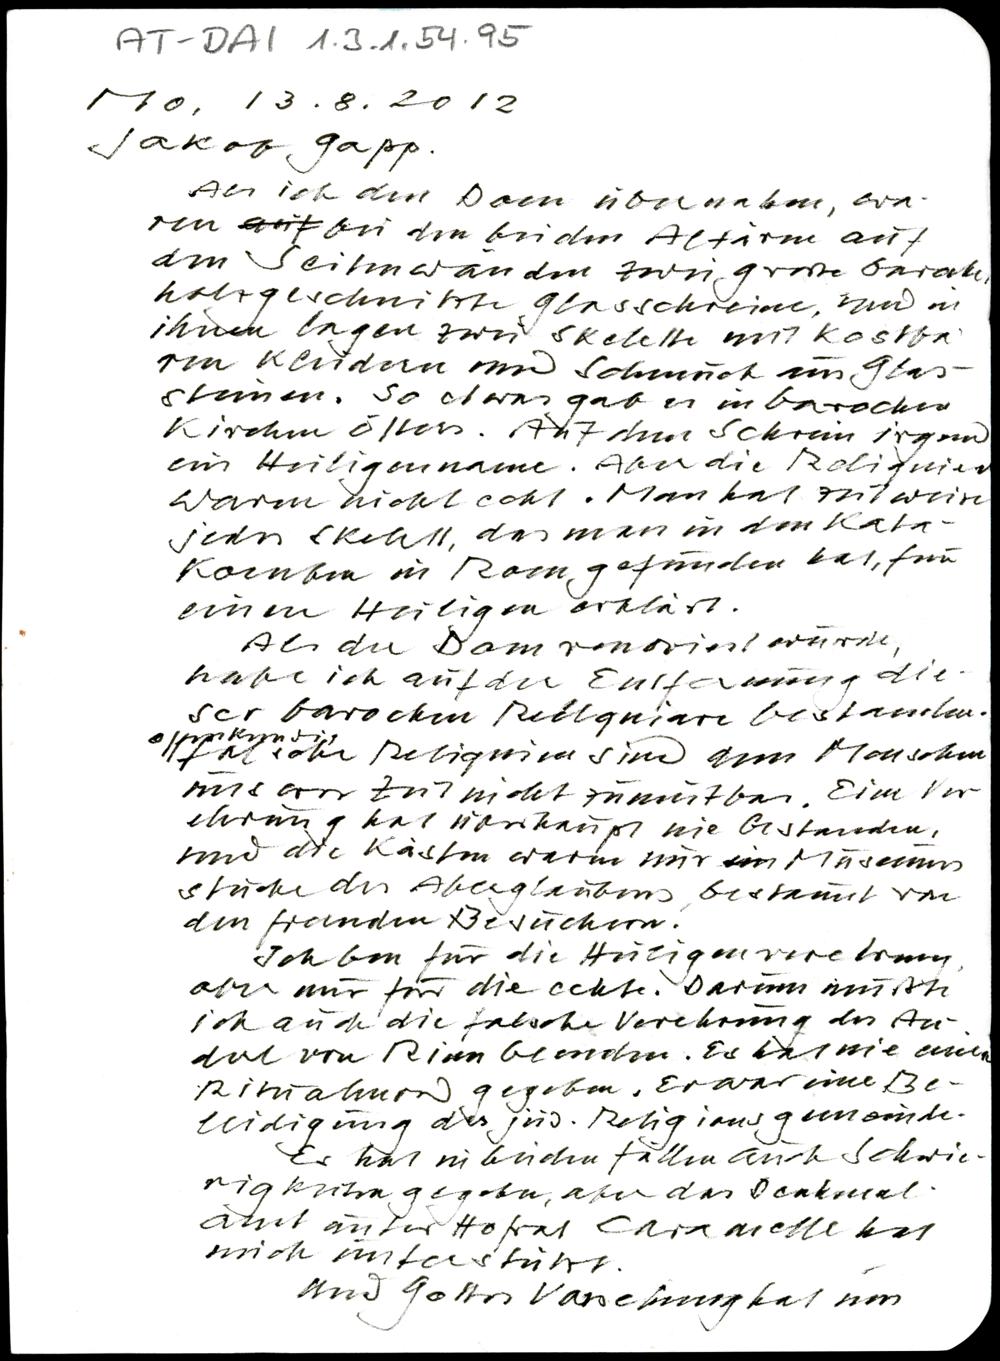 AT-DAI 1.3.1.54.95
Mo, 13.8.2012
Jakob Gapp.
Als ich den Dom übernahm, wa-
ren auf bei den beiden Altären auf
den Seitenwänden zwei grosse barocke,
holzgeschnitzte Glasschreine, und in
ihnen lagen zwei Skelette mit kostba-
ren Kleidern und Schmuck aus Glas-
steinen. So etwas gab es in barocken
Kirchen öfters. Auf dem Schrein irgend
ein Heiligenname. Aber die Reliquien
waren nicht echt. Man hat zeitweise
jedes Skelett, das man in den Kata-
komben in Rom gefunden hat, für
einen Heiligen erklärt.
Als der Dom renoviert wurde,
habe ich auf der Entfernung die-
ser barocken Reliquiare bestanden.
offenkundig
falsche Reliquien sind dem Menschen
unserer Zeit nicht zumutbar. Eine Ver-
ehrung hat überhaupt nie bestanden,
und die Kästen waren nur ein Museums
stücke des Aberglaubens, bestaunt von
den fremden Besuchern.
Ich bin für die Heiligenverehrung,
aber nur für die echte. Darum musste
ich auch die falsche Verehrung des An-
derl von Rinn beenden. Es hat nie einen
Ritualmord gegeben. Er war eine Be-
leidigung der jüd. Religionsgemeinde.
Es hat in beiden Fällen auch Schwie-
rigkeiten gegeben, aber das Denkmal-
amt unter Hofrat Caramelle hat
mich unterstützt.
Und Gottes Vorsehung hat uns